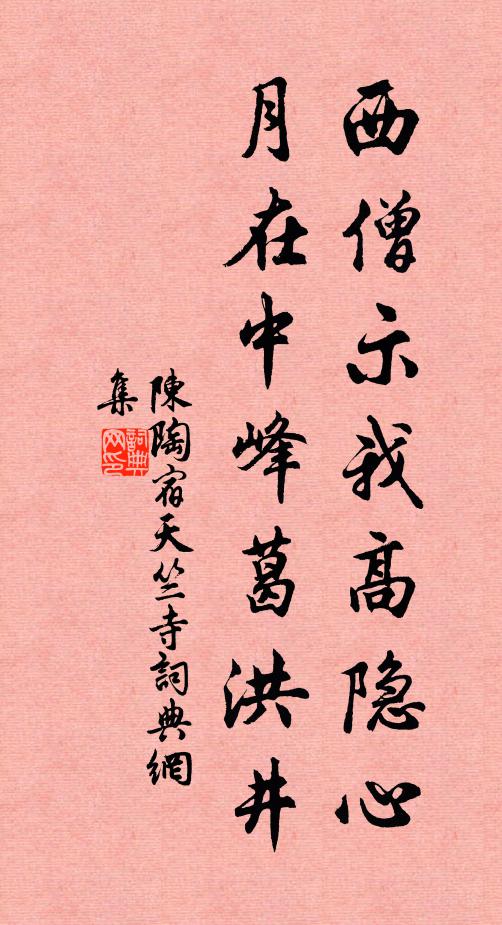 西僧示我高隐心
月在中峰葛洪井
陳陶宿天竺寺詞典網
集
詞典网印